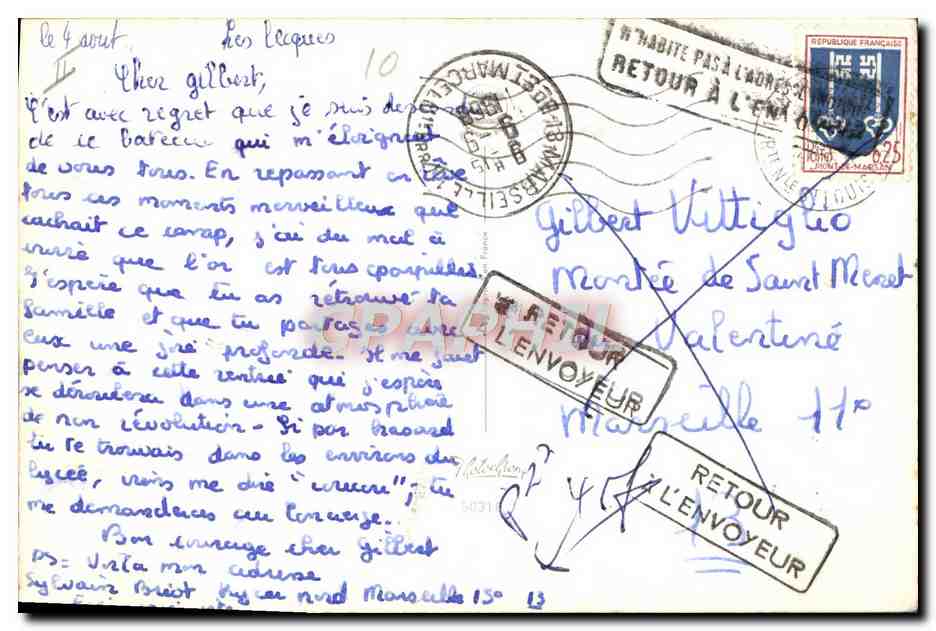 le 4 aout. Les Lecques
II
10
Cher Gilbert,
C'est avec regret que je suis descendu
de ce bateau qui m'éloignait
de vous tous. En repassant en
tous ces moments merveilleux que
cachait ce camp, j'ai du mal à
croire que l'or est tous éparpillés.
J'espère que tu as retrouvé ta
famille et que tu partages avec
eux une joie profonde. Il me faut
penser à cette rentrée qui j'espère
se déroulera dans une atmosphère
de non révolution - Si par hasard
tu te trouvais dans les environs du
lycée, viens me dire "coucou"; tu
me demanderas au concierge.
Bon courage cher Gilbert
PS = Voila mon adresse
Sylvain Briot Lycée Nord Marseille 15° 13
N'HABITE PAS À L'ADRESSE INDIQUÉE
RETOUR À L'ENVOYEUR
RÉPUBLIQUE FRANÇAISE
0,25
MONT-DE-MARSAN
MARSEILLE
Gilbert Vittiglio
Montée de Saint Menet
La Valentine
Marseille 11°
13
RETOUR
À L'ENVOYEUR
RETOUR
À L'ENVOYEUR
en France
CPAPHIL